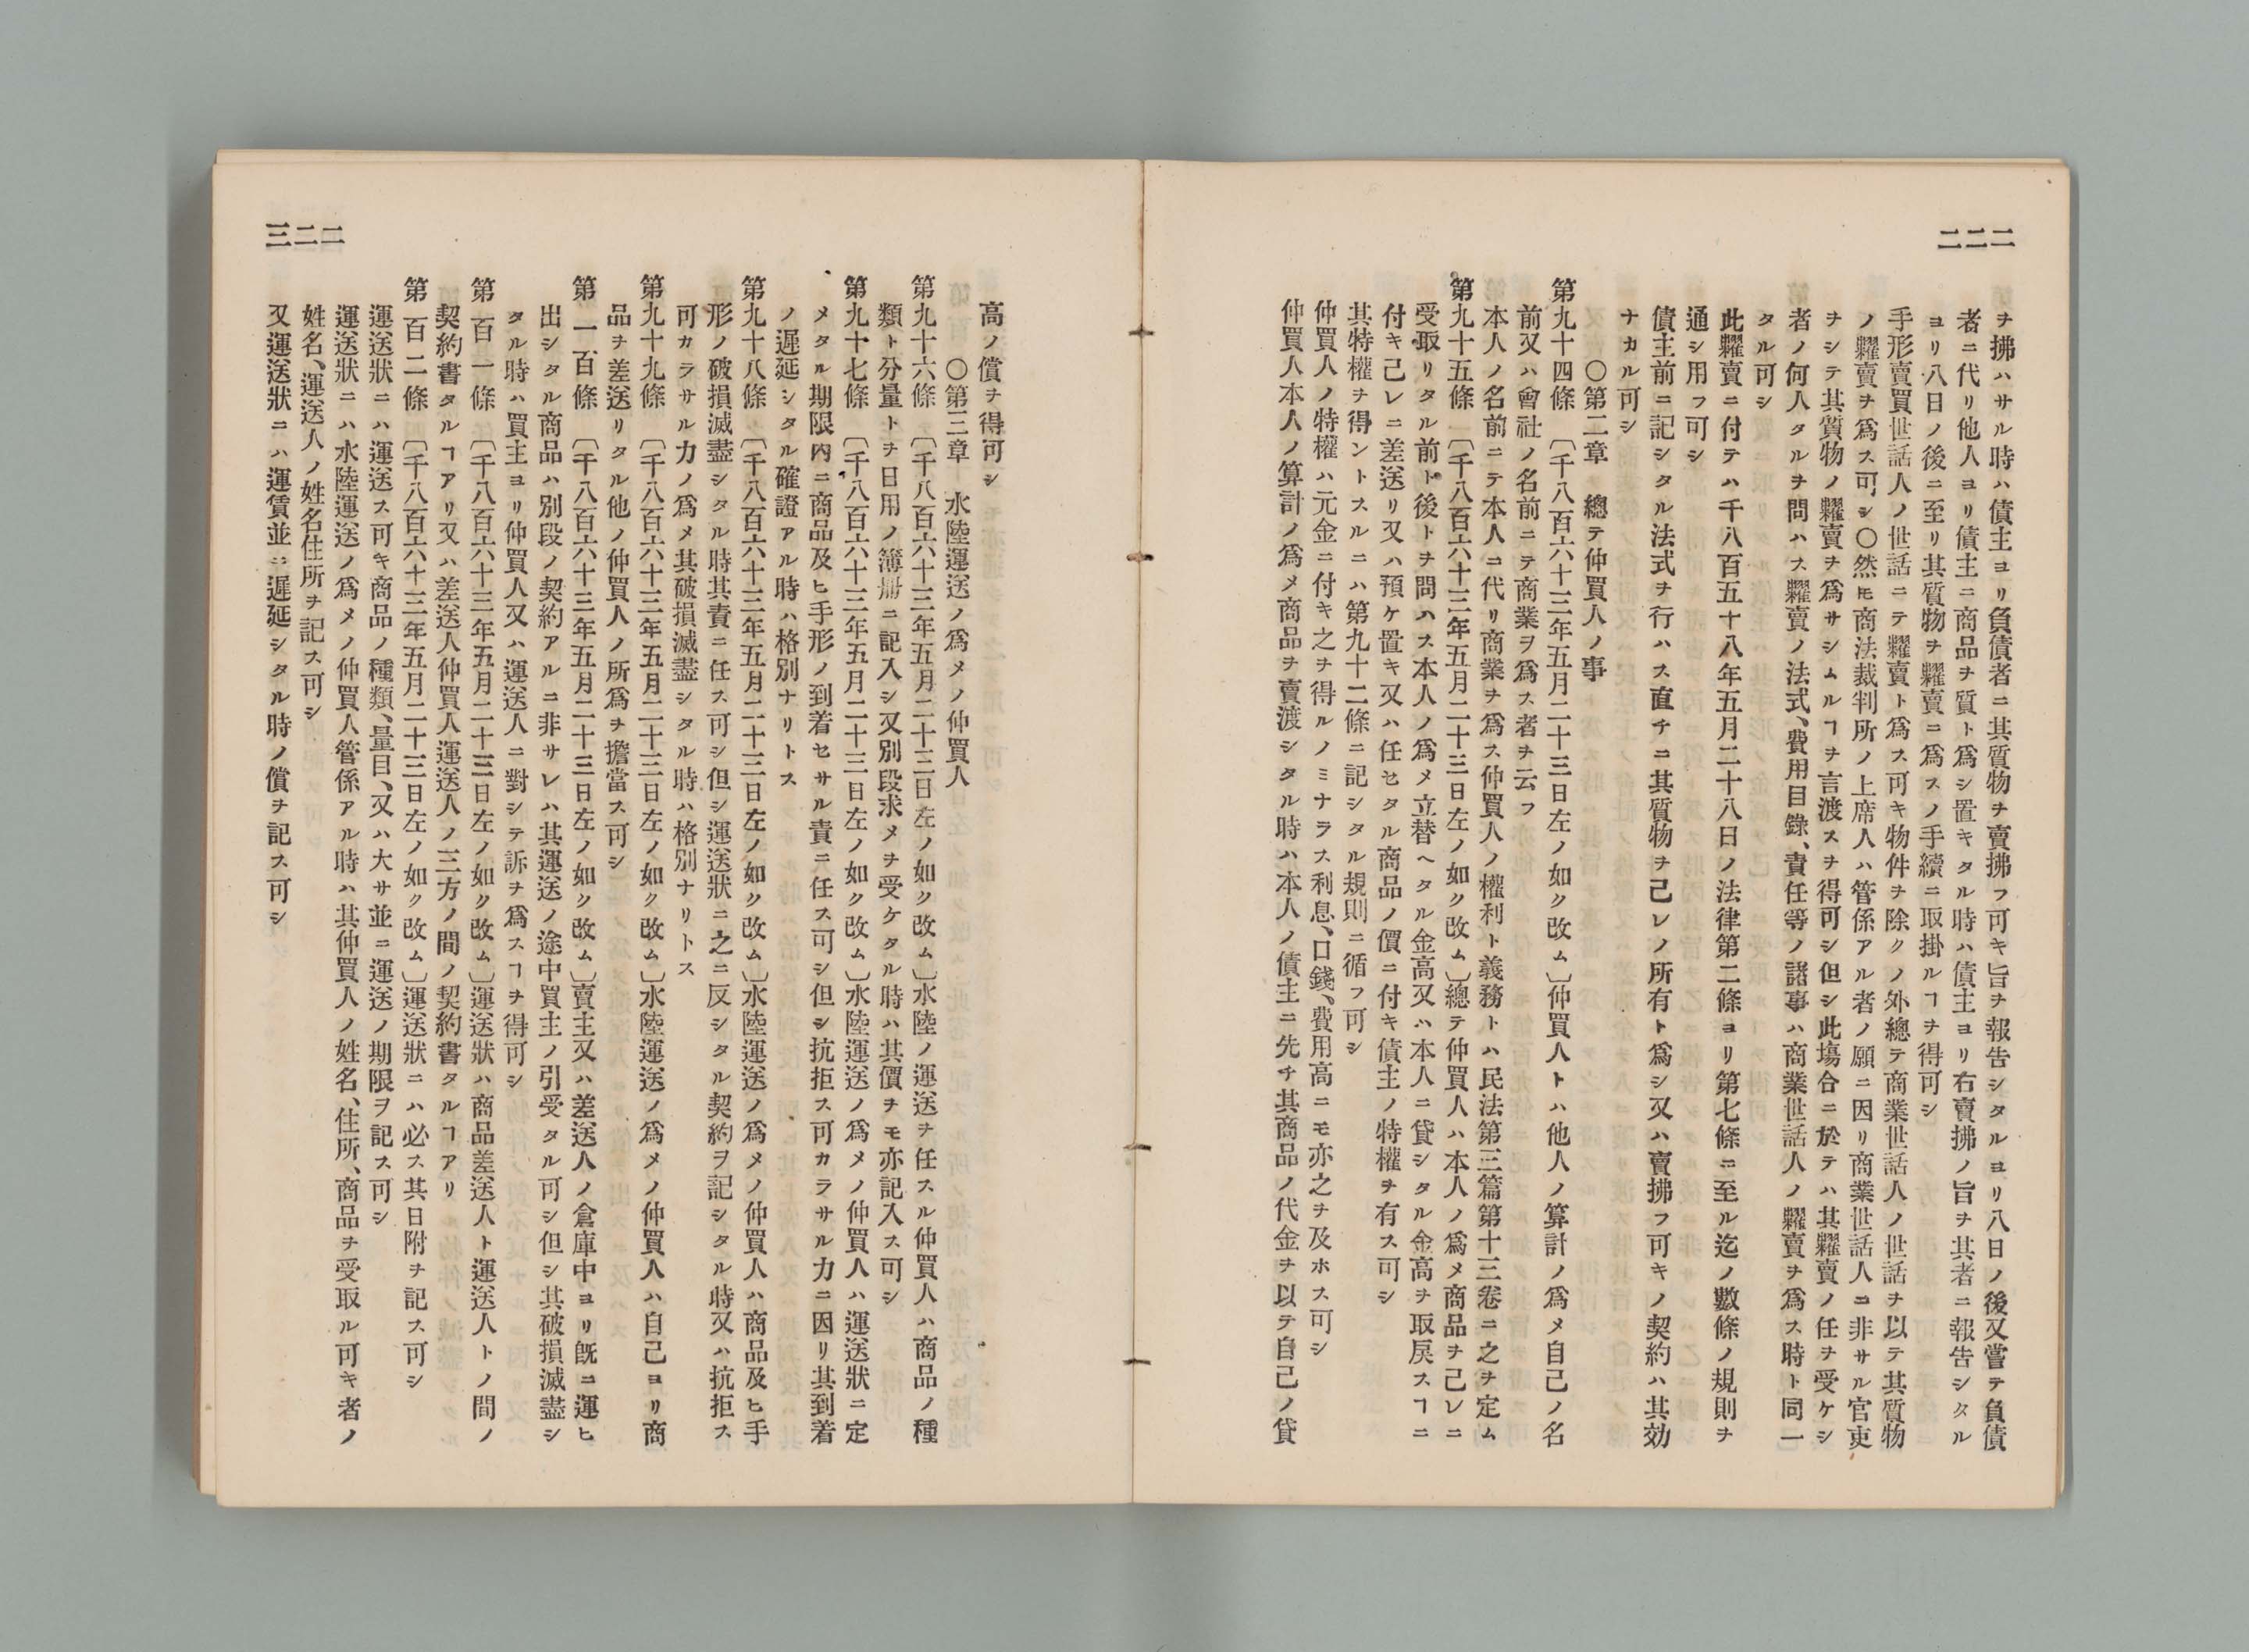 二二二
ヲ拂ハサル時ハ債主ヨリ負債者ニ其質物ヲ賣拂フ可キ旨ヲ報告シタルヨリ八日ノ後又嘗テ負債
者ニ代リ他人ヨリ債主ニ商品ヲ質ト爲シ置キタル時ハ債主ヨリ右賣拂ノ旨ヲ其者ニ報告シタル
ヨリ八日ノ後ニ至リ其質物ヲ糶賣ニ爲スノ手續ニ取掛ルヿヲ得可シ
手形賣買世話人ノ世話ニテ糶賣ト爲ス可キ物件ヲ除クノ外總テ商業世話人ノ世話ヲ以テ其質物
ノ糶賣ヲ爲ス可シ〇然𪜈商法裁判所ノ上席人ハ管係アル者ノ願ニ因リ商業世話人ニ非サル官吏
ヲシテ其質物ノ糶賣ヲ爲サシムルヿヲ言渡スヲ得可シ但シ此塲合ニ於テハ其糶賣ノ任ヲ受ケシ
者ノ何人タルヲ問ハス糶賣ノ法式、費用目錄、責任等ノ諸事ハ商業世話人ノ糶賣ヲ爲ス時ト同一
タル可シ
此糶賣ニ付テハ千八百五十八年五月二十八日ノ法律第二條ヨリ第七條ニ至ル迄ノ數條ノ規則ヲ
通シ用フ可シ
債主前ニ記シタル法式ヲ行ハス直チニ其質物ヲ己レノ所有ト爲シ又ハ賣拂フ可キノ契約ハ其効
ナカル可シ
〇第二章　總テ仲買人ノ事
第九十四條　〔千八百六十三年五月二十三日左ノ如ク改ム〕仲買人トハ他人ノ算計ノ爲メ自己ノ名
前又ハ會社ノ名前ニテ商業ヲ爲ス者ヲ云フ
本人ノ名前ニテ本人ニ代リ商業ヲ爲ス仲買人ノ權利ト義務トハ民法第三篇第十三卷ニ之ヲ定ム
第九十五條　〔千八百六十三年五月二十三日左ノ如ク改ム〕總テ仲買人ハ本人ノ爲メ商品ヲ己レニ
受取リタル前ト後トヲ問ハス本人ノ爲メ立替ヘタル金高又ハ本人ニ貸シタル金高ヲ取戾スヿニ
付キ己レニ差送リ又ハ預ケ置キ又ハ任セタル商品ノ價ニ付キ債主ノ特權ヲ有ス可シ
其特權ヲ得ントスルニハ第九十二條ニ記シタル規則ニ循フ可シ
仲買人ノ特權ハ元金ニ付キ之ヲ得ルノミナラス利息、口錢、費用高ニモ亦之ヲ及ホス可シ
仲買人本人ノ算計ノ爲メ商品ヲ賣渡シタル時ハ本人ノ債主ニ先チ其商品ノ代金ヲ以テ自己ノ貸
二二三
高ノ償ヲ得可シ
〇第三章　水陸運送ノ爲メノ仲買人
第九十六條　〔千八百六十三年五月二十三日左ノ如ク改ム〕水陸ノ運送ヲ任スル仲買人ハ商品ノ種
類ト分量トヲ日用ノ簿册ニ記入シ又別段求メヲ受ケタル時ハ其價ヲモ亦記入ス可シ
第九十七條　〔千八百六十三年五月二十三日左ノ如ク改ム〕水陸運送ノ爲メノ仲買人ハ運送狀ニ定
メタル期限內ニ商品及ヒ手形ノ到着セサル責ニ任ス可シ但シ抗拒ス可カラサル力ニ因リ其到着
ノ遲延シタル確證アル時ハ格別ナリトス
第九十八條　〔千八百六十三年五月二十三日左ノ如ク改ム〕水陸運送ノ爲メノ仲買人ハ商品及ヒ手
形ノ破損滅盡シタル時其責ニ任ス可シ但シ運送狀ニ之ニ反シタル契約ヲ記シタル時又ハ抗拒ス
可カラサル力ノ爲メ其破損滅盡シタル時ハ格別ナリトス
第九十九條　〔千八百六十三年五月二十三日左ノ如ク改ム〕水陸運送ノ爲メノ仲買人ハ自己ヨリ商
品ヲ差送リタル他ノ仲買人ノ所爲ヲ擔當ス可シ
第一百條　〔千八百六十三年五月二十三日左ノ如ク改ム〕賣主又ハ差送人ノ倉庫中ヨリ旣ニ運ヒ
出シタル商品ハ別段ノ契約アルニ非サレハ其運送ノ途中買主ノ引受タル可シ但シ其破損滅盡シ
タル時ハ買主ヨリ仲買人又ハ運送人ニ對シテ訴ヲ爲スヿヲ得可シ
第百一條　〔千八百六十三年五月二十三日左ノ如ク改ム〕運送狀ハ商品差送人ト運送人トノ間ノ
契約書タルヿアリ又ハ差送人仲買人運送人ノ三方ノ間ノ契約書タルヿアリ
第百二條　〔千八百六十三年五月二十三日左ノ如ク改ム〕運送狀ニハ必ス其日附ヲ記ス可シ
運送狀ニハ運送ス可キ商品ノ種類、量目、又ハ大サ並ニ運送ノ期限ヲ記ス可シ
運送狀ニハ水陸運送ノ爲メノ仲買人管係アル時ハ其仲買人ノ姓名、住所、商品ヲ受取ル可キ者ノ
姓名、運送人ノ姓名住所ヲ記ス可シ
又運送狀ニハ運賃並ニ遲延シタル時ノ償ヲ記ス可シ